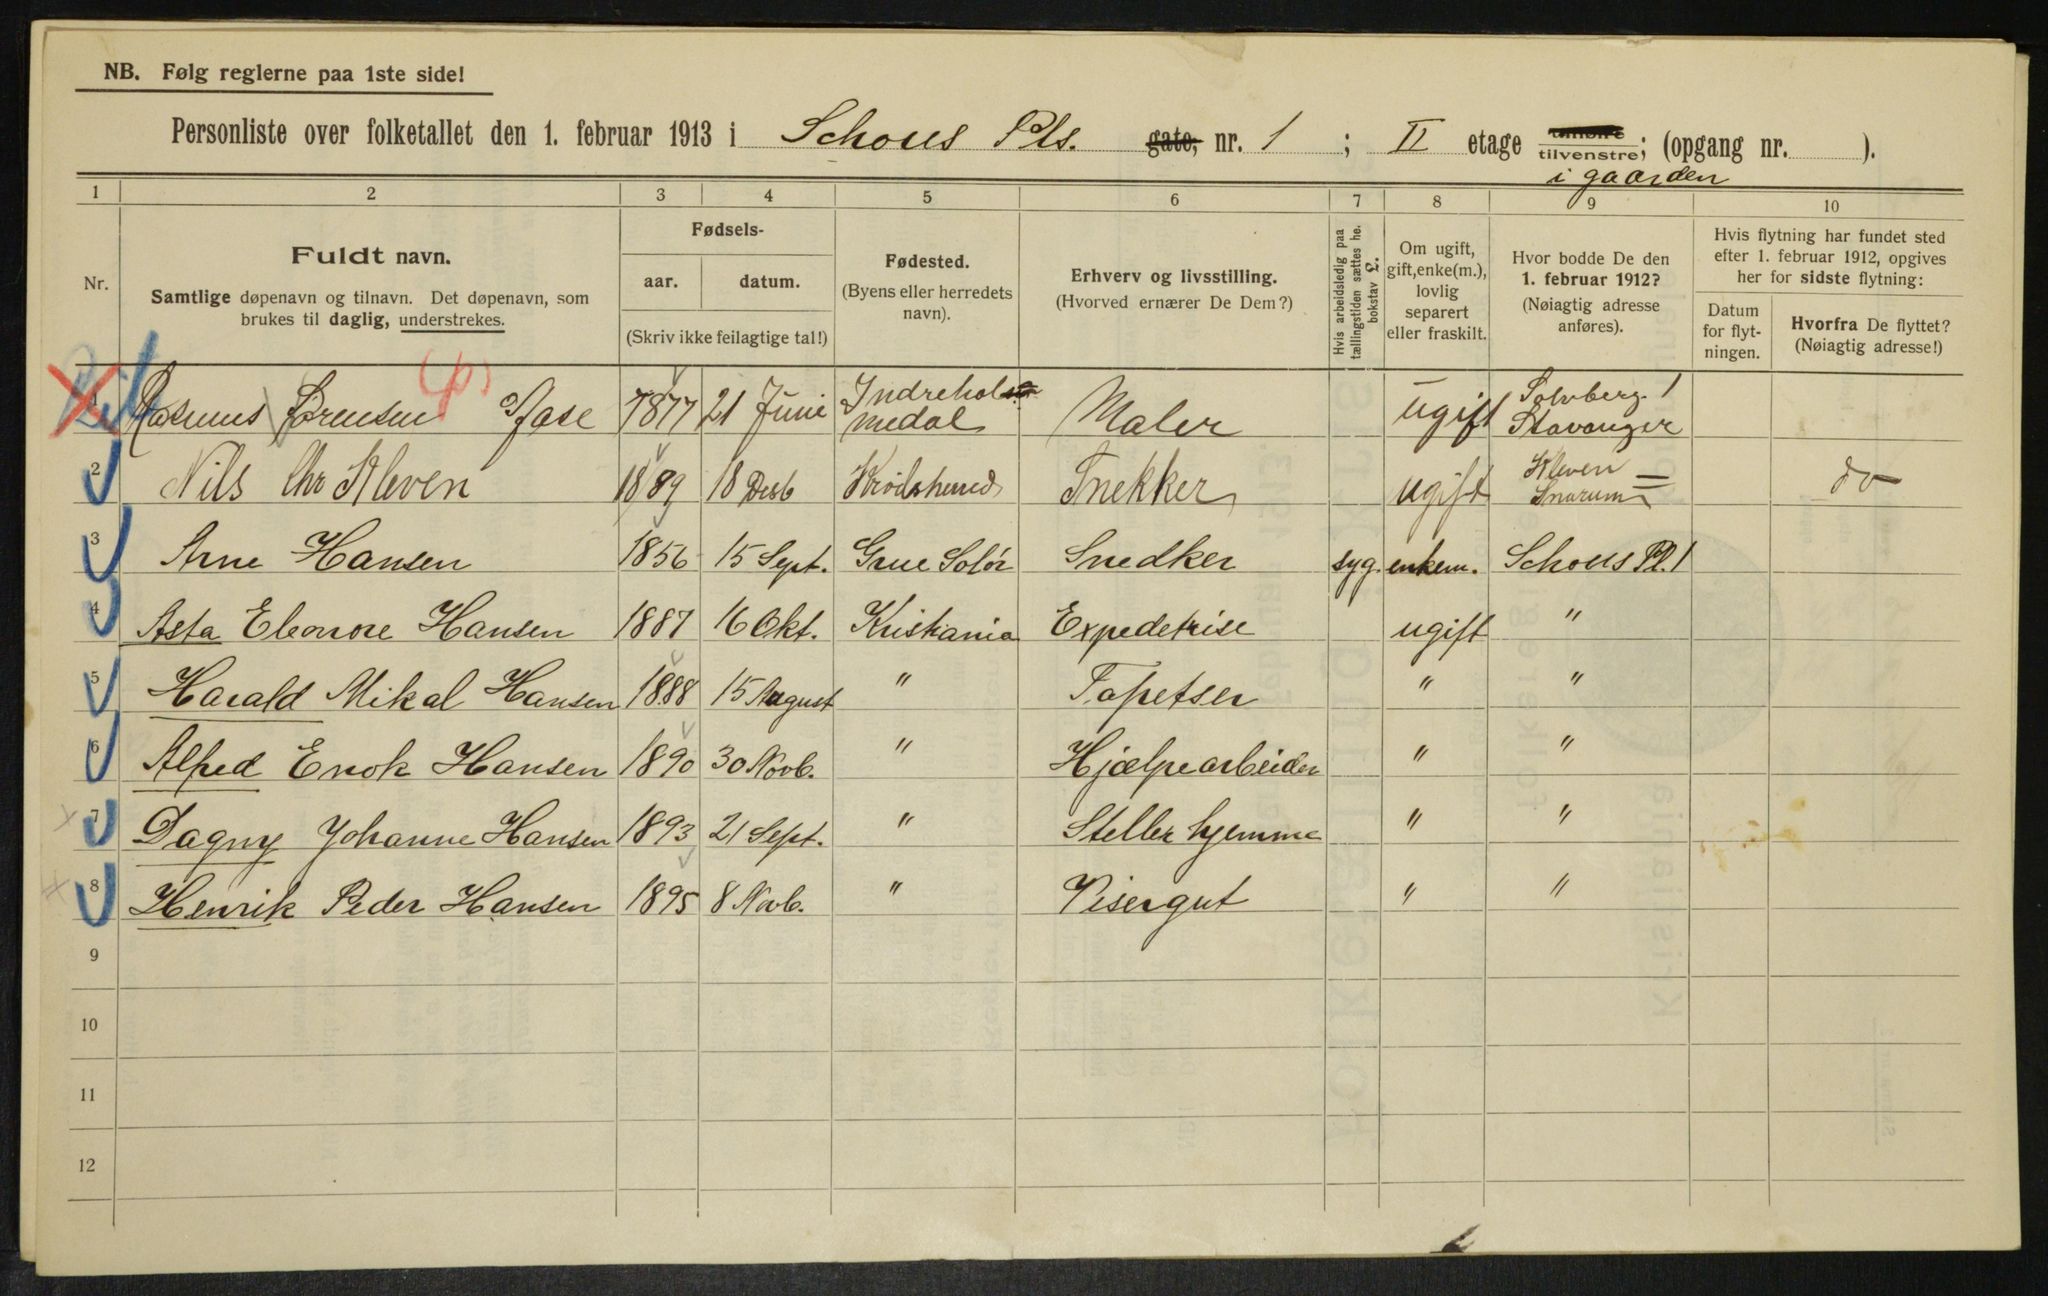 NB. Følg reglerne paa 1ste side!
Personliste over folketallet den 1. februar 1913 i Schous Pls. gate, nr. 1 ; II etage tilhøire tilvenstre; (opgang nr. ).
i gaarden
1 2 3 4 5 6 7 8 9 10
Nr.
Fuldt navn.
Samtlige døpenavn og tilnavn. Det døpenavn, som
brukes til daglig, understrekes.
Fødsels-
aar. datum.
(Skriv ikke feilagtige tal!)
Fødested.
(Byens eller herredets
navn).
Erhverv og livsstilling.
(Hvorved ernærer De Dem?)
Hvis arbeidsledig paa
tællingstiden sættes her
bokstav L.
Om ugift,
gift, enke(m.),
lovlig
separert
eller fraskilt.
Hvor bodde De den
1. februar 1912?
(Nøiagtig adresse
anføres).
Hvis flytning har fundet sted
efter 1. februar 1912, opgives
her for sidste flytning:
Datum
for flyt-
ningen.
Hvorfra De flyttet?
(Nøiagtig adresse!)
1 Rasmus Sørensen 1877 21 Juni Indreholmedal Maler ugift Solvberg. 1 Stavanger
2 Nils Chr Kleven 1889 18 Desb Krødsherred Snekker ugift Kleven Snarum do
3 Arne Hansen 1856 15 Sept. Grue Solør Snedker syg. enkem. Schous Pl. 1
4 Asta Eleonore Hansen 1887 16 Okt. Kristiania Expedetrise ugift "
5 Harald Mikal Hansen 1888 15 August " Tapetser " "
6 Alfred Enok Hansen 1890 30 Novb. " Hjælpearbeider " "
7 Dagny Johanne Hansen 1893 21 Sept. " Steller hjemme " "
8 Henrik Peder Hansen 1895 8 Novb. " Visergut " "
9
10
11
12